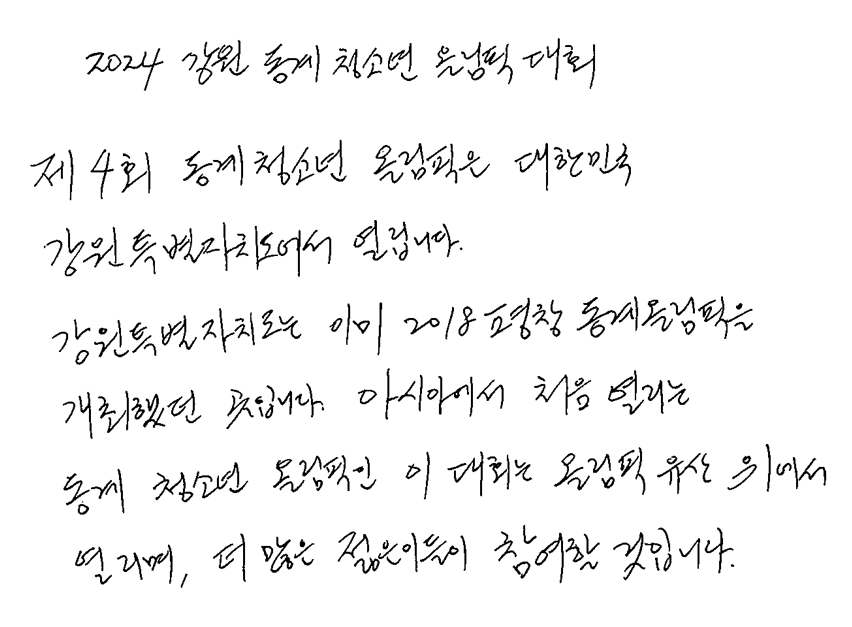 2024 강원 동계 청소년 올림픽 대회
제 4회 동계 청소년 올림픽은 대한민국
강원특별자치도에서 열립니다.
강원특별자치도는 이미 2018 평창 동계올림픽을
개최했던 곳입니다. 아시아에서 처음 열리는
동계 청소년 올림픽인 이 대회는 올림픽 유산 위에서
열리며, 더 많은 젊은이들이 참여할 것입니다.